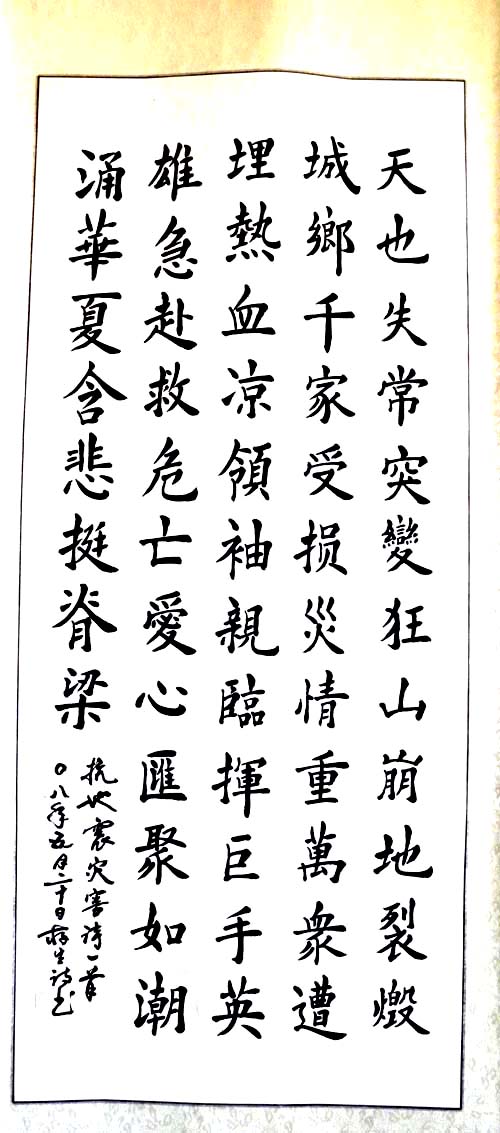 天也失常突變狂山崩地裂燬
城鄉千家受损災情重萬衆遭
埋熱血凉領袖親臨揮巨手英
雄急赴救危亡愛心匯聚如潮
涌華夏含悲挺脊梁
抗地震灾害诗一首
〇八年五月二十日存生诗书